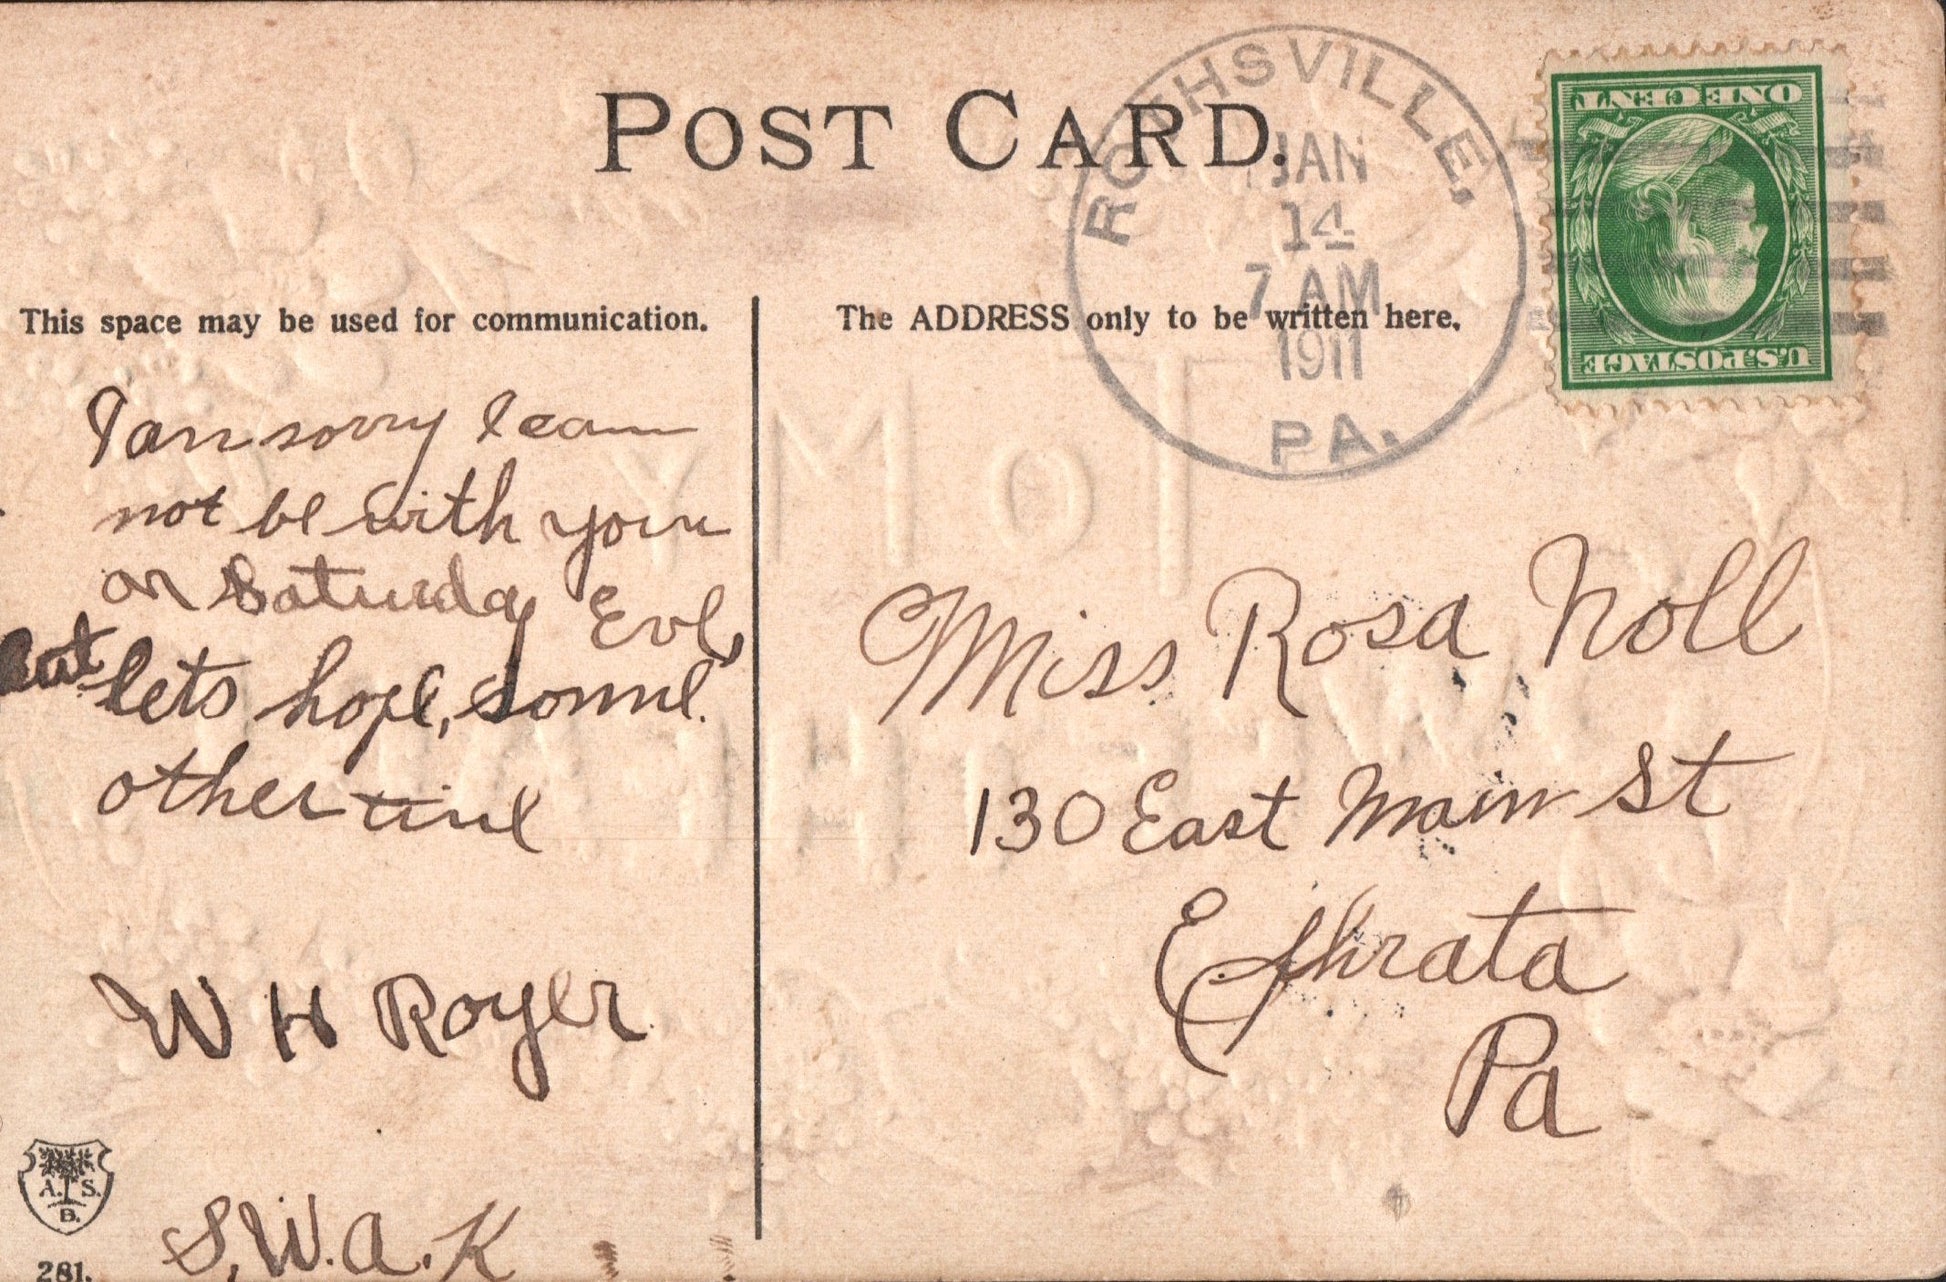 POST CARD.
ROTHSVILLE,
JAN
14
7 AM
1911
PA.
ONE CENT
U.S. POSTAGE
This space may be used for communication.
The ADDRESS only to be written here.
I am sorry I can
not be with you
on Saturday Eve,
but lets hope, some.
other time
W H Royer
S.W.A.K
Miss Rosa Noll
130 East Main St
Ephrata
Pa
A. S.
B.
281.
TO MY
SWEETHEART